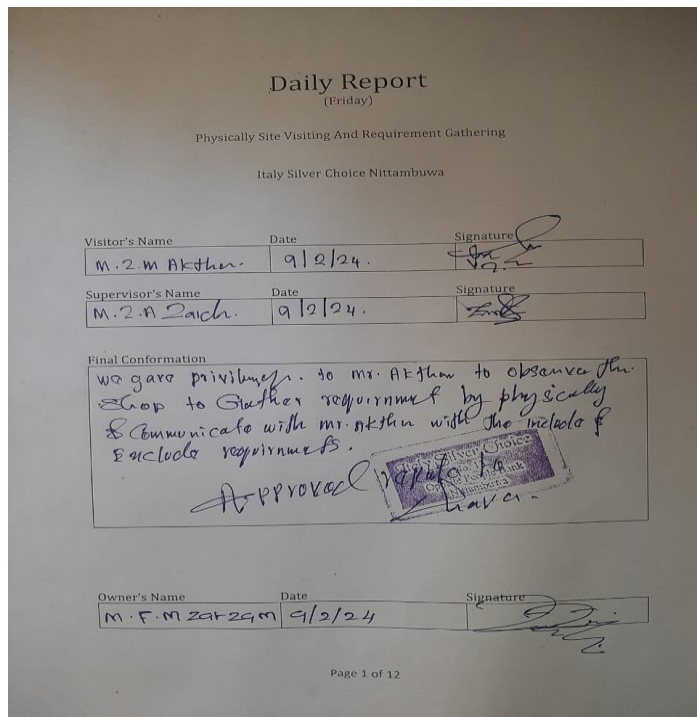 Daily Report
(Friday)
Physically Site Visiting And Requirement Gathering
Italy Silver Choice Nittambuwa
Visitor's Name Date Signature
M.Z.M Akther. 9/2/24.
Supervisor's Name Date Signature
M.Z.A Zaich. 9/2/24.
Final Conformation
we gave to Mr. Akthar to observe the
Shop to Gather requirnmet by physically
& Communicate with mr. Akther with the include &
Exclude requirnmets.
Approved
Italy Silver Choice
Opposite People's Bank
Nittambuwa
Owner's Name Date Signature
M.F.M Zarzam 9/2/24
Page 1 of 12